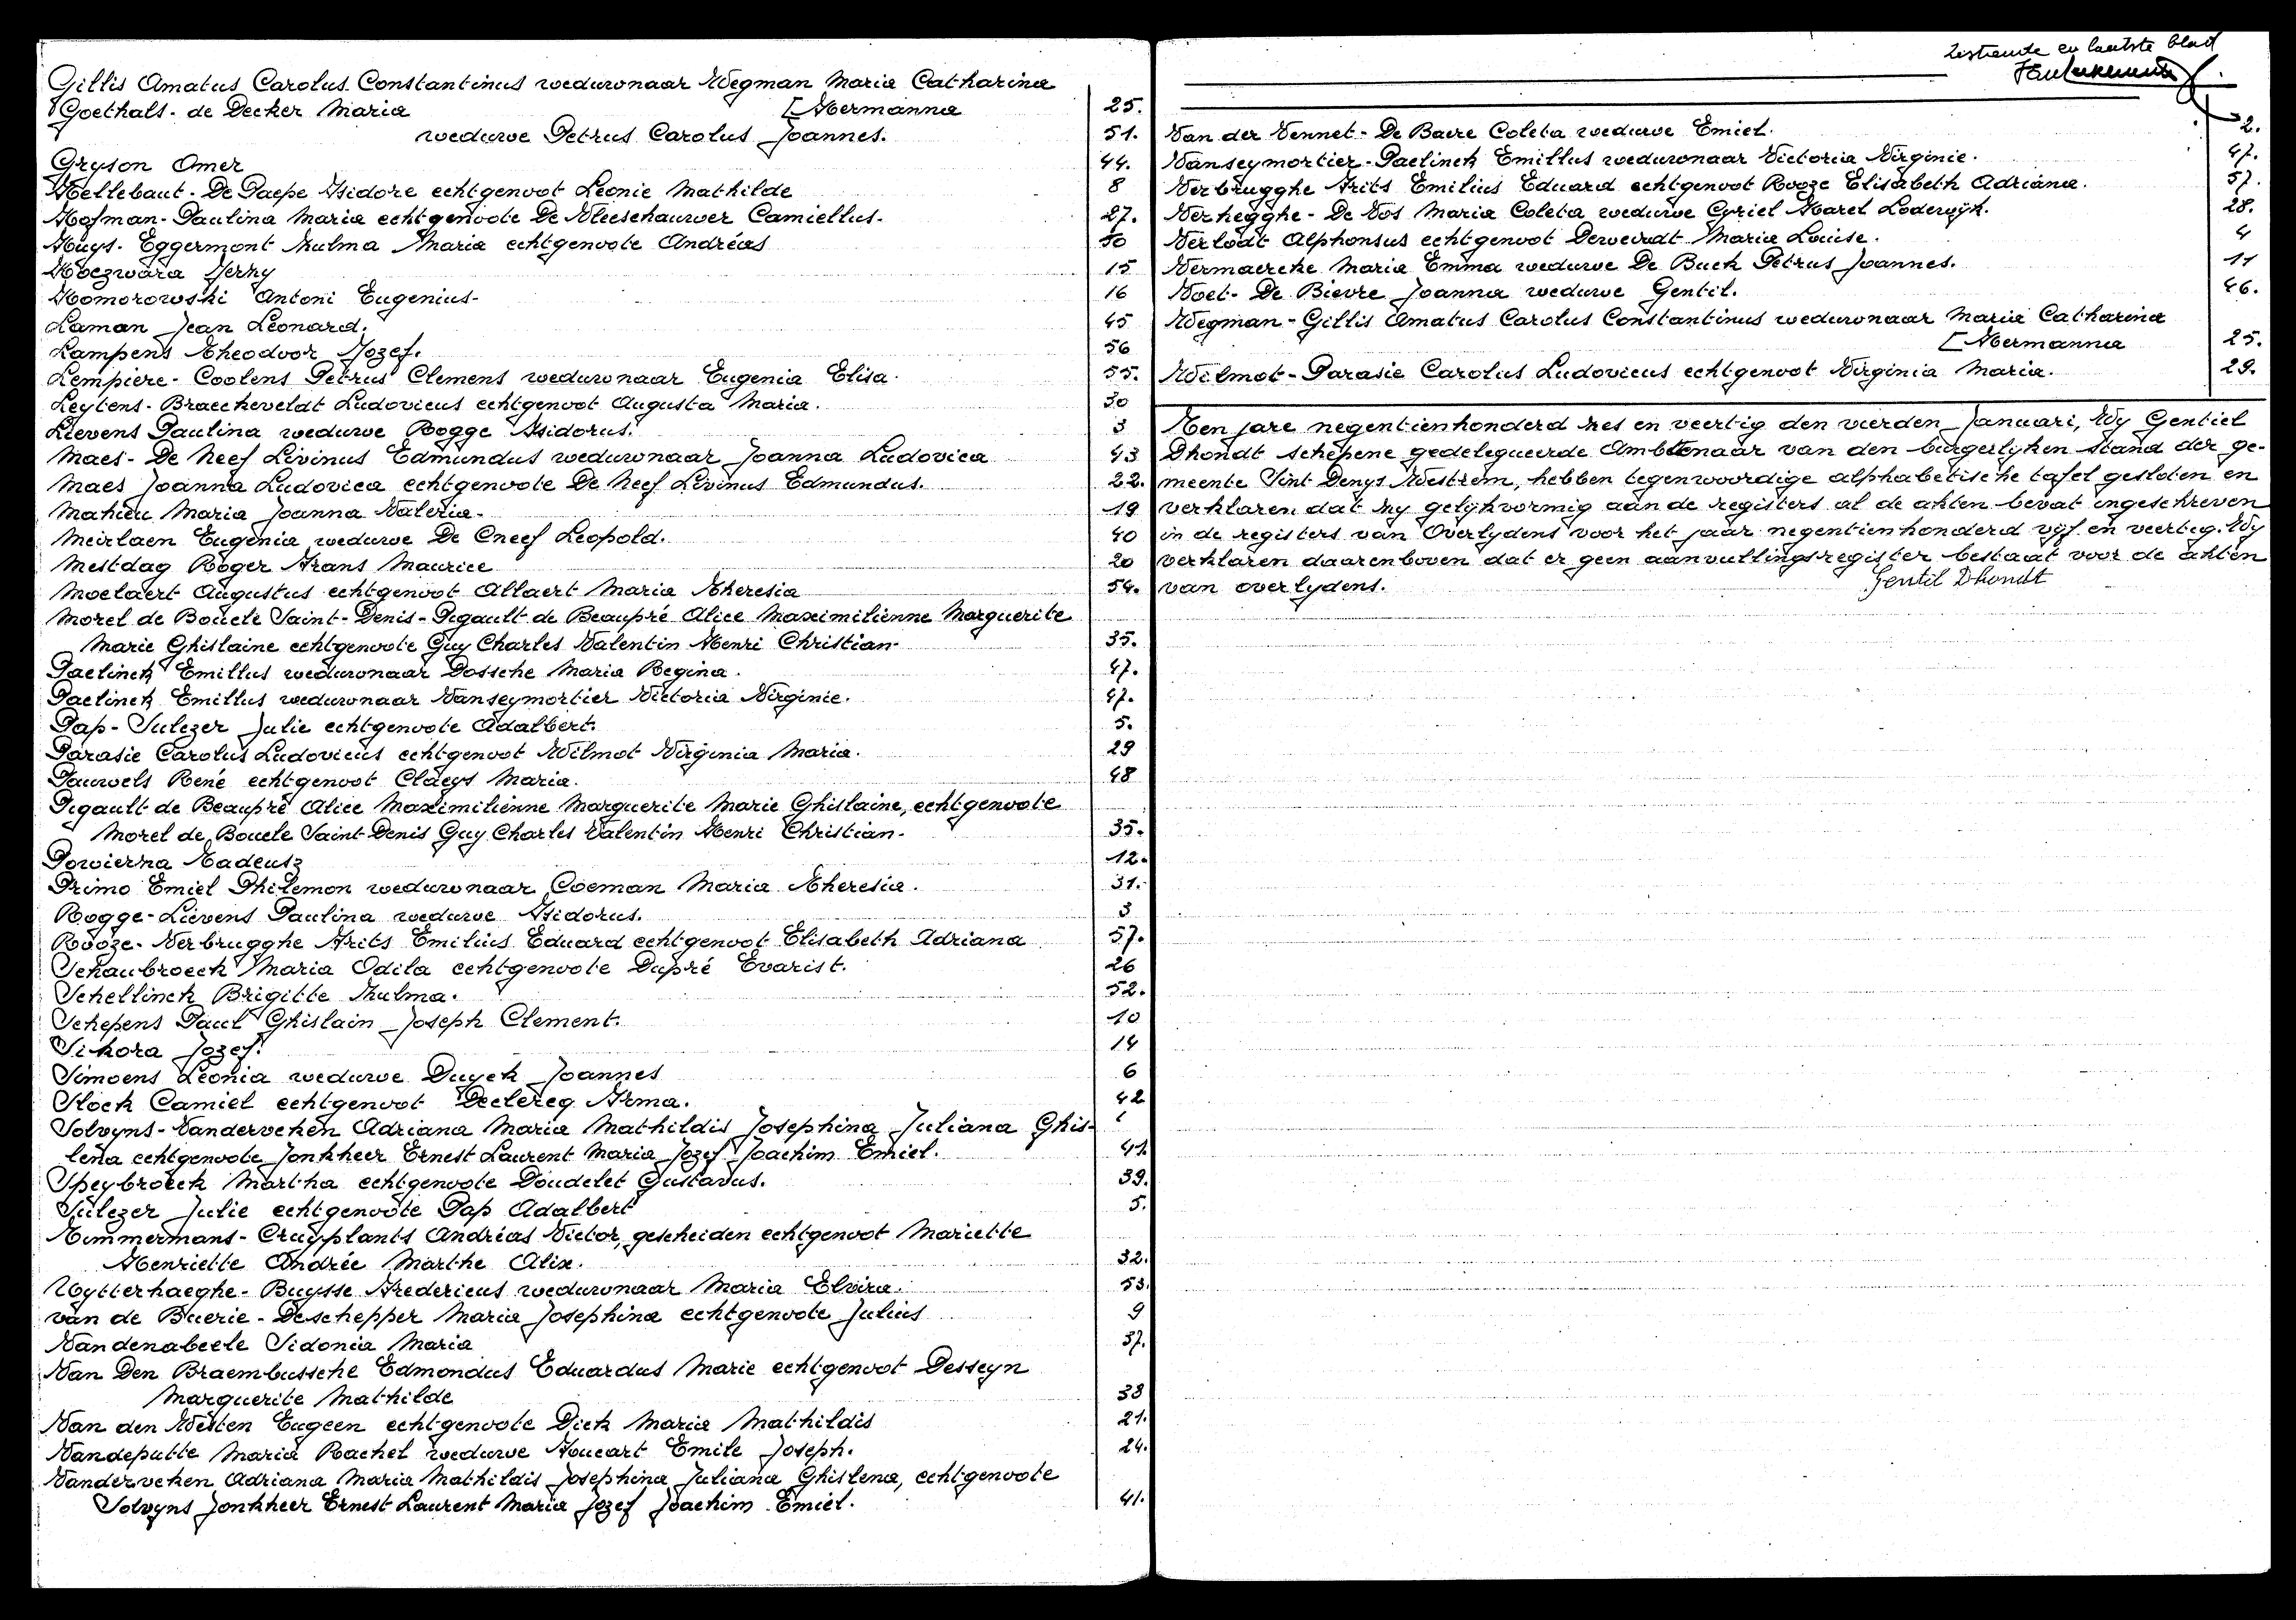 Gillis Amatus Carolus Constantinus weduwnaar Wegman Maria Catharina
Goethals - de Decker Maria [Hermanna 25.
weduwe Petrus Carolus Joannes. 51.
Gryson Omer 44.
Hellebaut - De Paepe Isidore echtgenoot Leonie Mathilde 8
Hofman - Paulina Maria echtgenoote De Vleeschauwer Camiellus - 27.
Huys - Eggermont Zulma Maria echtgenoote Andréas 50
Koczwara Jerzy 15
Komorowski Antoni Eugenius - 16
Laman Jean Léonard. 45
Lampens Theodoor Jozef. 56
Lempiere - Coolens Petrus Clemens weduwnaar Eugenia Elisa. 55.
Leytens - Braeckeveldt Ludovicus echtgenoot Augusta Maria. 30
Lievens Paulina weduwe Rogge Isidorus. 3
Maes - De Neef Livinus Edmundus weduwnaar Joanna Ludovica 43
Maes Joanna Ludovica echtgenoote De Neef Livinus Edmundus. 22.
Mahieu Maria Joanna Valeria - 19
Meirlaen Eugenia weduwe De Cneef Leopold. 40
Mestdag Roger Frans Maurice 20
Moelaert Augustus echtgenoot Allaert Maria Theresia 54.
Morel de Boucle Saint-Denis - Pigault de Beaupré Alice Maximilienne Marguerite
Marie Ghislaine echtgenoote Guy Charles Valentin Henri Christian - 35.
Paelinck Emillus weduwnaar Dossche Maria Regina. 47.
Paelinck Emillus weduwnaar Vanseymortier Victoria Virginie. 47.
Pap - Sulczer Julie echtgenoote Adalbert. 5.
Parasie Carolus Ludovicus echtgenoot Wilmot Virginia Maria. 29
Pauwels René echtgenoot Claeys Maria. 48
Pigault de Beaupré Alice Maximilienne Marguerite Marie Ghislaine, echtgenoote
Morel de Boucle Saint-Denis Guy Charles Valentin Henri Christian - 35.
Powierza Tadeusz 12.
Primo Emiel Philemon weduwnaar Coeman Maria Theresia. 31.
Rogge - Lievens Paulina weduwe Isidorus. 3
Rooze - Verbrugghe Frits Emilius Eduard echtgenoot Elisabeth Adriana 57.
Schaubroeck Maria Odila echtgenoote Dupré Evarist. 26
Schellinck Brigitte Zulma. 52.
Schepens Paul Ghislain Joseph Clement. 10
Sikora Jozef. 14
Simoens Leonia weduwe Duyck Joannes 6
Slock Camiel echtgenoot Declercq Irma. 42
Solvyns - Vanderveken Adriana Maria Mathildis Josephina Juliana Ghis-
lena echtgenoote Jonkheer Ernest Laurent Maria Jozef Joachim Emiel. 41.
Speybroeck Martha echtgenoote Doudelet Gustavus. 39.
Sulczer Julie echtgenoote Pap Adalbert 5.
Timmermans - Cruyplants Andréas Victor, gescheiden echtgenoot Mariette
Henriette Andrée Marthe Alix. 32.
Uytterhaeghe - Buysse Fredericus weduwnaar Maria Elvira. 53.
van de Buerie - Deschepper Maria Josephina echtgenoote Julius 9
Vandenabeele Sidonia Maria 37.
Van Den Braembussche Edmondus Eduardus Marie echtgenoot Desseyn
Marguerite Mathilde 38
Van den Westen Eugeen echtgenoote Dick Maria Mathildis 21.
Vandeputte Maria Rachel weduwe Houcart Emile Joseph. 24.
Vanderveken Adriana Maria Mathildis Josephina Juliana Ghislena, echtgenoote
Solvyns Jonkheer Ernest Laurent Maria Jozef Joachim Emiel. 41.
Zestiende en laatste blad
Van der Vennet - De Baere Coleta weduwe Emiel. 2.
Vanseymortier - Paelinck Emillus weduwnaar Victoria Virginie. 47.
Verbrugghe Frits Emilius Eduard echtgenoot Rooze Elisabeth Adriana. 57.
Verhegghe - De Vos Maria Coleta weduwe Cyriel Karel Lodewijk. 28.
Verlodt Alphonsus echtgenoot Deweirdt Maria Louise. 4
Vermaercke Maria Emma weduwe De Buck Petrus Joannes. 11
Voet - De Bievre Joanna weduwe Gentil. 46.
Wegman - Gillis Amatus Carolus Constantinus weduwnaar Maria Catharina
[Hermanna 25.
Wilmot - Parasie Carolus Ludovicus echtgenoot Virginia Maria. 29.
Ten jare negentienhonderd zes en veertig den vierden Januari, Wy Gentiel
Dhondt schepene gedelegueerde Ambtenaar van den burgerlyken stand der ge-
meente Sint Denys Westrem, hebben tegenwoordige alphabetische tafel gesloten en
verklaren dat zy gelykvormig aan de registers al de akten bevat ingeschreven
in de registers van Overlydens voor het jaar negentienhonderd vijf en veertig. Wy
verklaren daarenboven dat er geen aanvullingsregister bestaat voor de akten
van overlydens. Gentil Dhondt